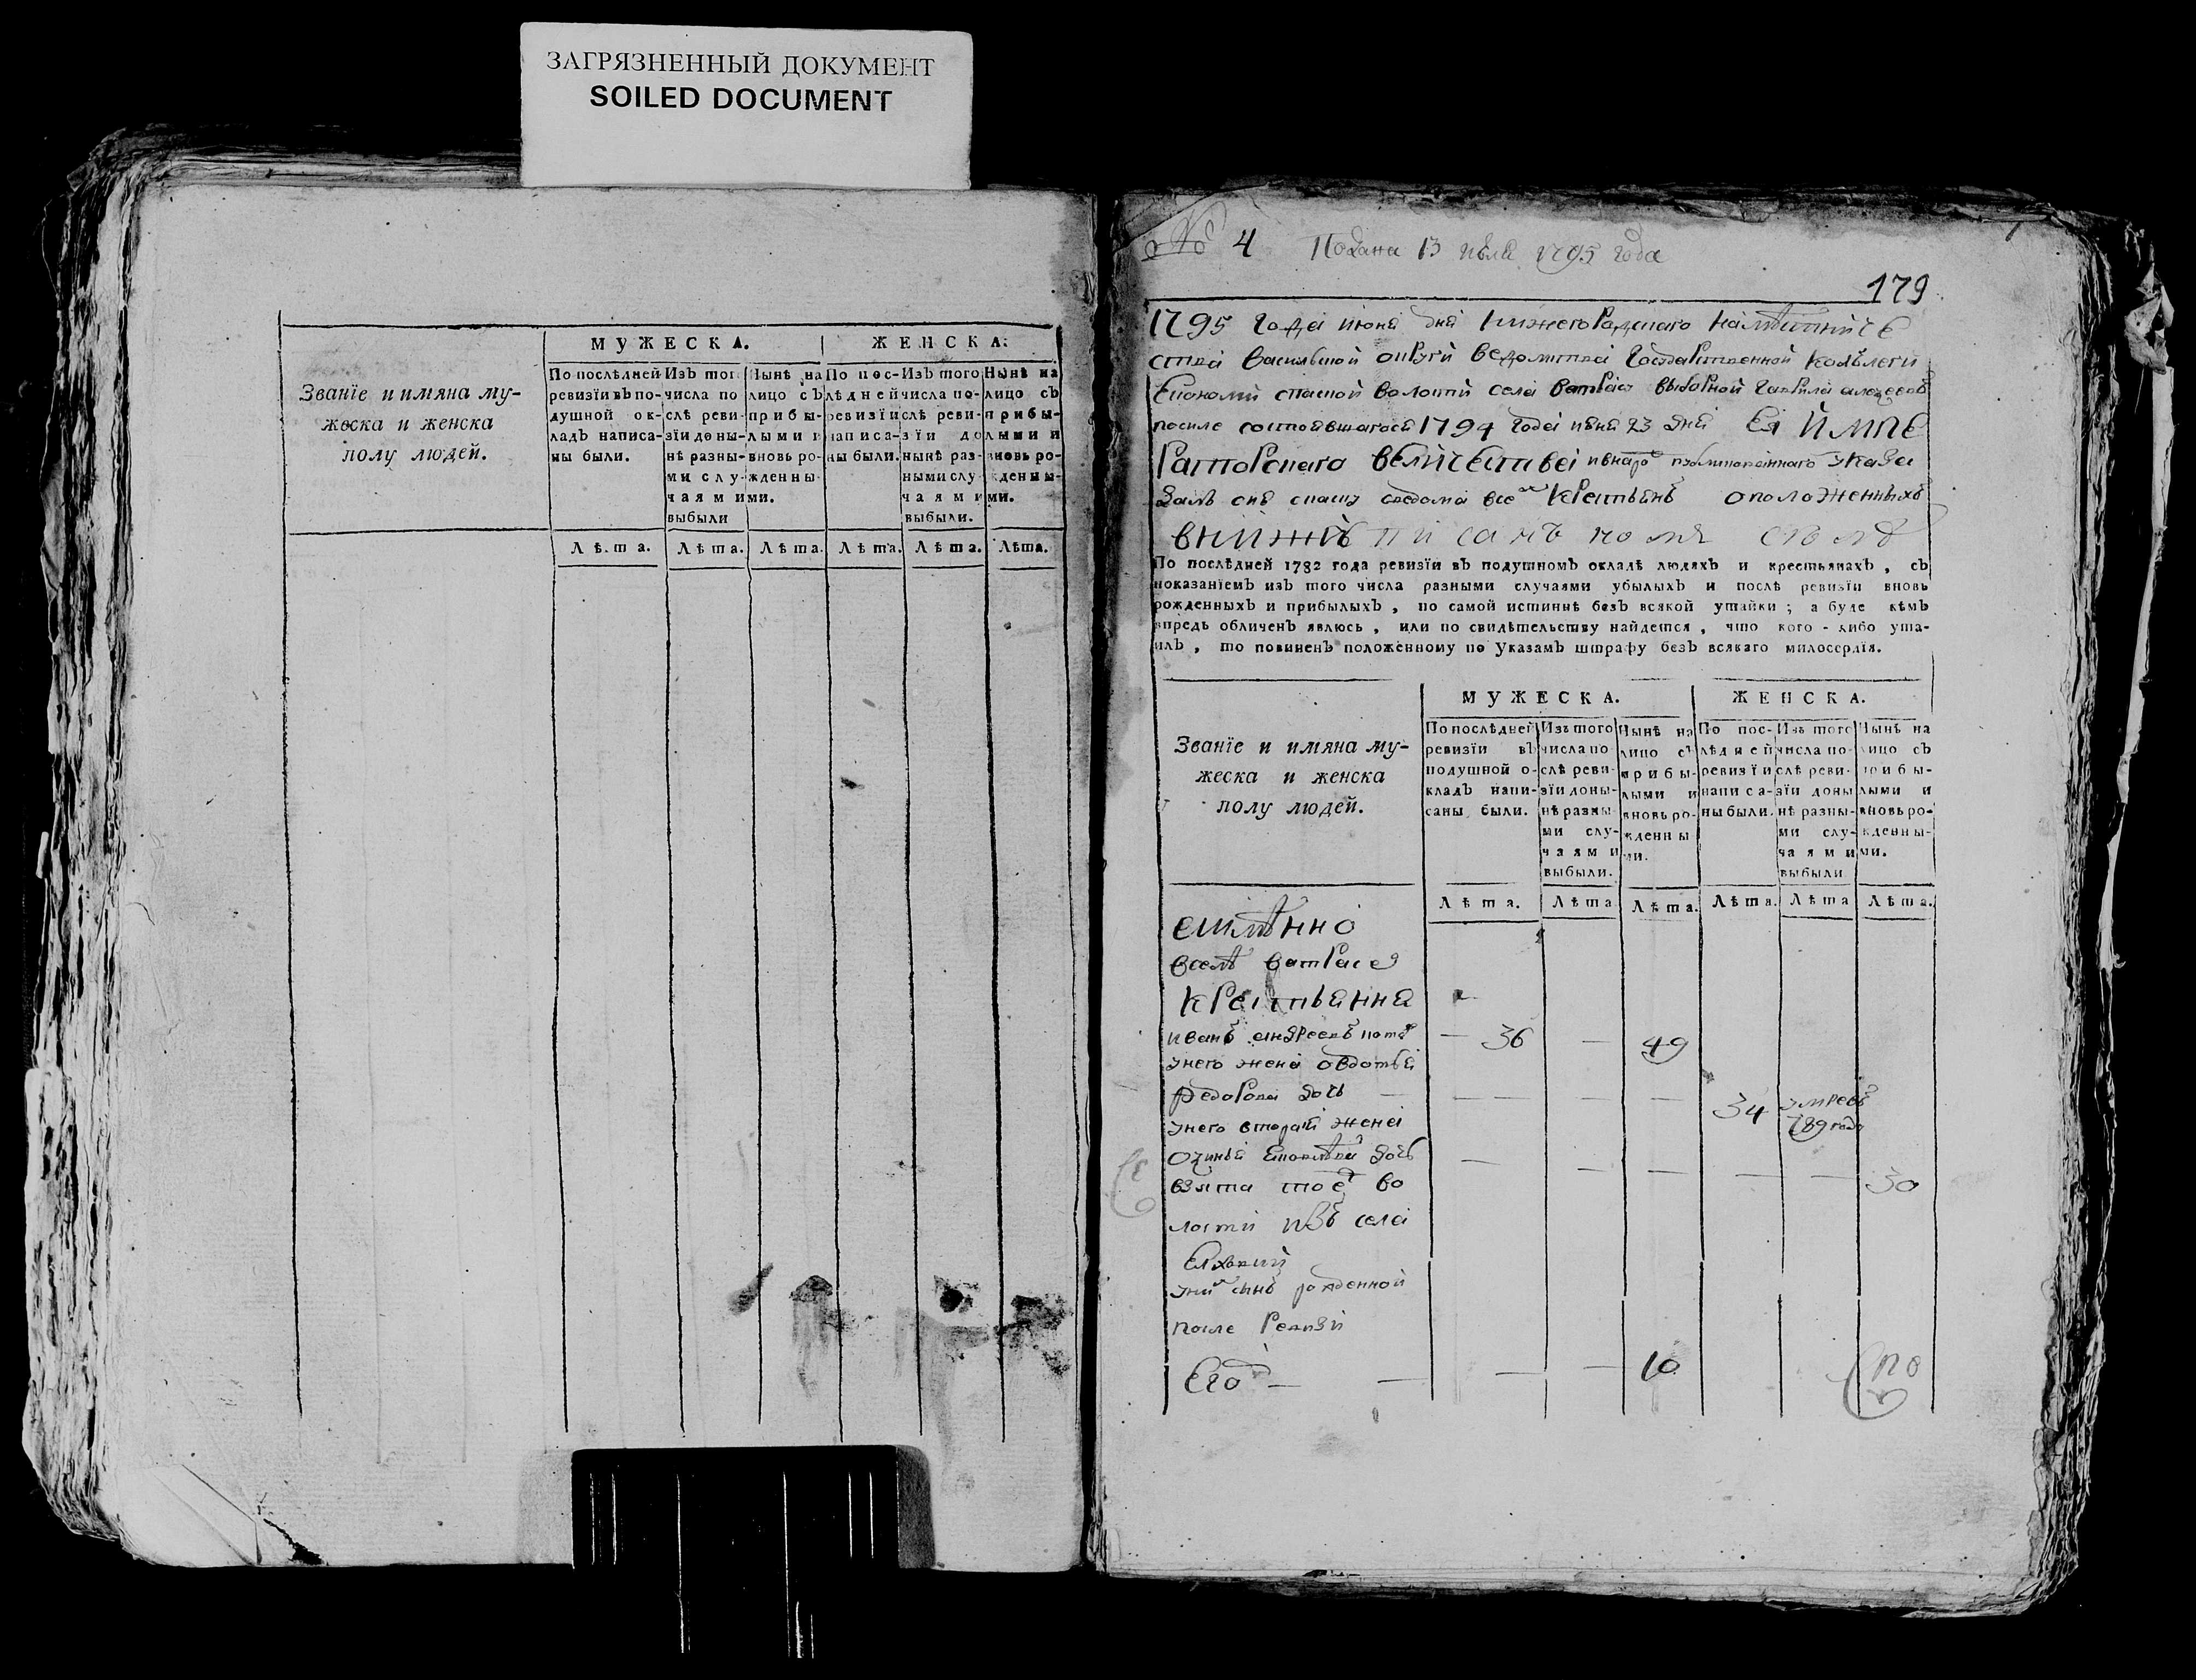 ЗАГРЯЗНЕННЫЙ ДОКУМЕНТ
SOILED DOCUMENT
МУЖЕСКА.
ЖЕНСКА:
Званїе и имяна му-
жеска и женска
полу людей.
По послѣдней
ревизїи въ по-
душной ок-
ладъ написа-
ны были.
Изъ тог
числа по
слѣ реви-
зїи до ны-
нѣ разны-
ми слу-
чаями
выбыли
Нынѣ на
лицо съ
прибы-
лыми и
вновь ро-
жденны
ми.
По пос-
лѣдней
ревизїи
написа-
ны были.
Изъ того
числа по-
слѣ реви-
зїи до
нынѣ раз-
ными слу
чаями
выбыли.
Нынѣ на
лицо съ
прибы-
лыми и
вновь ро-
жденны-
ми.
Лѣта. Лѣта. Лѣта. Лѣта. Лѣта. Лѣта.
№ 4 Подана 13 июля 1795 года
179
1795 года июня дня нижегородскаго намѣстниче
ства васильской округи ведомства государственной коллегии
Економии спаской волости села ватрас выборной гаврила
после состоявшагося 1794 года июня 23 дня Ея ИМПЕ
раторскаго величества указа
крестьянъ о положенныхъ
По послѣдней 1782 года ревизїи въ подушномъ окладѣ людяхъ и крестьянахъ, съ
показанїемъ изъ того числа разными случаями убылыхъ и послѣ ревизїи вновь
рожденныхъ и прибылыхъ, по самой истиннѣ безъ всякой утайки; а буде кѣмъ
впредь обличенъ явлюсь, или по свидѣтельству найдется, что кого-либо ута-
илъ, то повиненъ положенному по Указамъ штрафу безъ всякаго милосердїя.
МУЖЕСКА.
ЖЕНСКА.
Званїе и имяна му-
жеска и женска
полу людей.
По послѣдней
ревизїи въ
подушной о-
кладъ напи-
саны были.
Изъ того
числа по
слѣ реви-
зїи доны-
нѣ разны-
ми слу-
чаями
выбыли.
Нынѣ на
лицо съ
прибы-
лыми и
вновь ро-
жденны
ми.
По пос-
лѣдней
ревизїи
написа-
ны были.
Изъ того
числа по-
слѣ реви-
зїи доны
нѣ разны-
ми слу-
чаями
выбыли
Нынѣ на
лицо съ
прибы-
лыми и
вновь ро-
жденны-
ми.
Лѣта. Лѣта Лѣта. Лѣта. Лѣта Лѣта.
еимѣнно
вселѣ ватрасе
крестьяня
иванъ андреевъ 36 — 49
унего жена авдотья
федорова дочь — — — — 34 умре въ
789 году
унего вторая жена
дочь
взята тоеж во — — — — — 30
лости изъ села
Елховки
унихъ сынъ рожденной
после ревизи
Егор — — — — 10